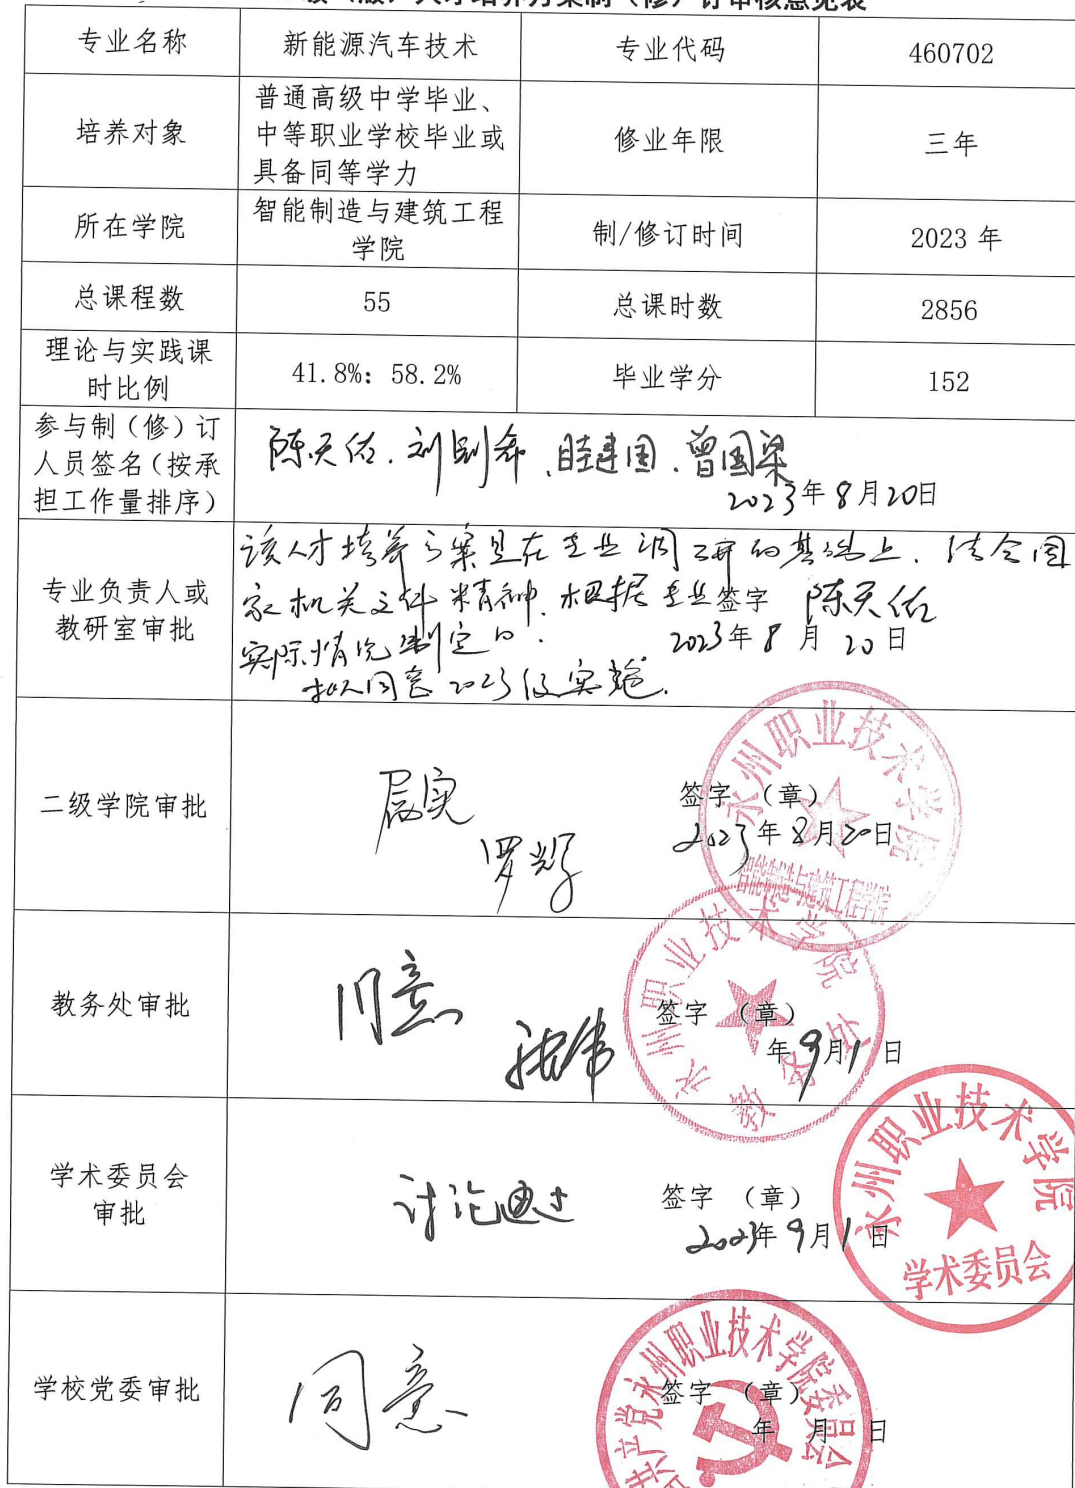 人才培养方案制（修）订审核意见表
专业名称 新能源汽车技术 专业代码 460702
培养对象 普通高级中学毕业、
中等职业学校毕业或
具备同等学力 修业年限 三年
所在学院 智能制造与建筑工程
学院 制/修订时间 2023 年
总课程数 55 总课时数 2856
理论与实践课
时比例 41.8%: 58.2% 毕业学分 152
参与制（修）订
人员签名（按承
担工作量排序）
陈天佑、
眭建国、曾国梁
2023年8月20日
专业负责人或
教研室审批
该人才培养方案是在专业调研的基础上，结合国
家相关文件精神，根据专业
实际情况制定的，
拟同意2023级实施。
签字 陈天佑
2023年8月20日
二级学院审批
罗
签字 （章）
2023年8月20日
永州职业技术学院
智能制造与建筑工程学院
教务处审批
同意
签字 （章）
年9月1日
永州职业技术学院
教务处
学术委员会
审批
讨论通过
签字 （章）
2023年9月1日
永州职业技术学院
学术委员会
学校党委审批
同意
签字 （章）
年 月 日
共产党永州职业技术学院委员会